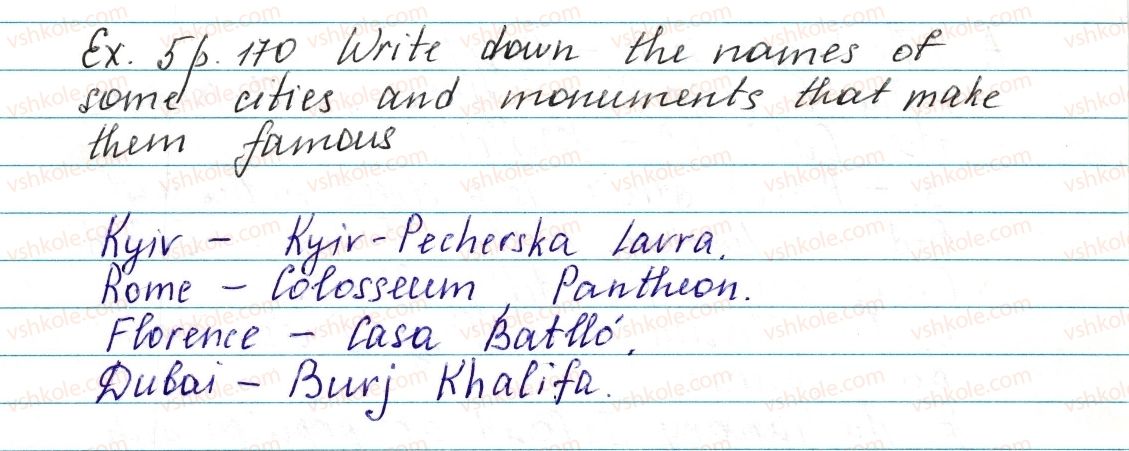 Ex. 5 p. 170 Write down the names of
some cities and monuments that make
them famous
Kyiv – Kyiv-Pecherska Lavra.
Rome – Colosseum, Pantheon.
Florence – Casa Batlló.
Dubai – Burj Khalifa.